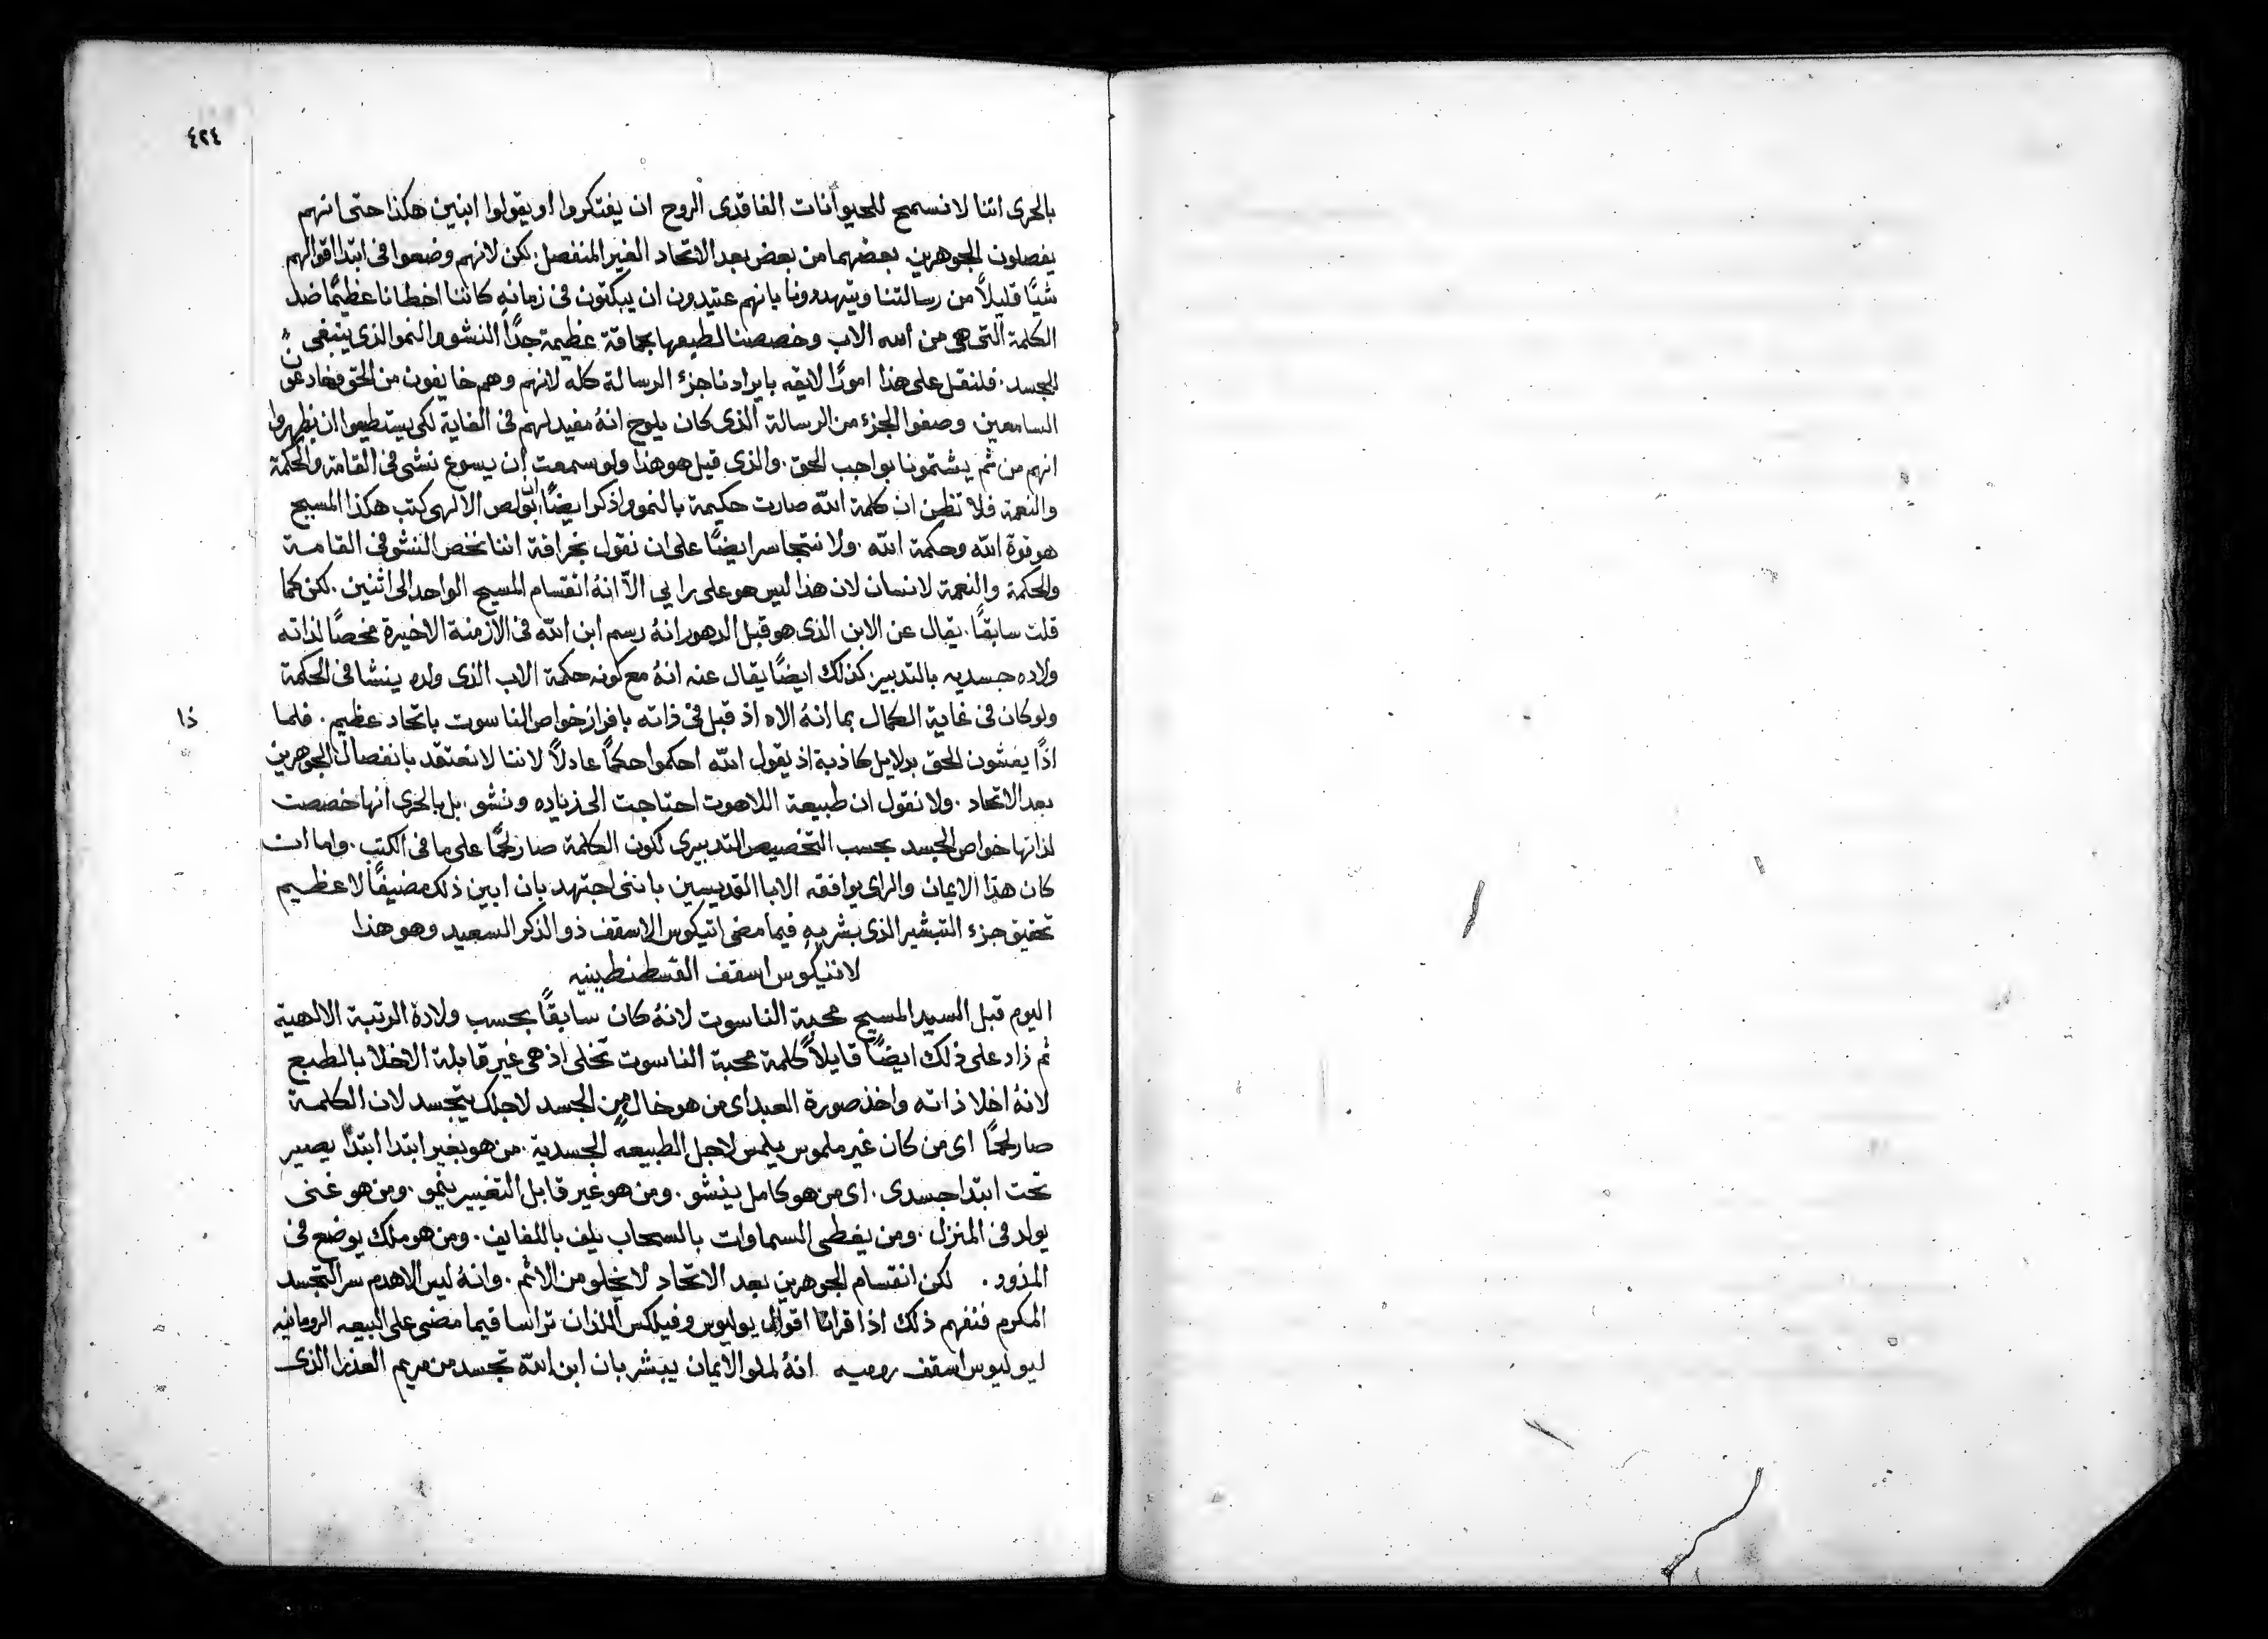 ٤٢٤
بالحرى اننا لا نسمح للحيوانات الفاقدى الروح ان يفتكروا او يقولوا ابنين هكذا حتى انهم
يفصلون الجوهرين بعضهما من بعض بعد الاتحاد الغير المنفصل. لكن لانهم وضعوا فى ابتدا اقوالهم
شيًا قليلاً من رسالتنا ويتهددونا بانهم عتيدون ان يبكتون فى زمانهِ كاننا اخطانا عظيمًا ضد
الكلمة التى هى من الله الاب وخصصنا لطبعها بحماقة عظيمة جدًا النشو والنمو الذى ينبغى
للجسد. فلنقل على هذا امورًا لايقه بايرادنا جزء الرسالة كله لانهم وهم خايفون من الحق يخادعون
السامعين وصفوا الجزء من الرسالة الذى كان يلوح انهُ مفيد لهم فى الغاية لكى يستطيعوا ان يظهروا
انهم من ثم يشتمونا بواجب الحق. والذى قيل هو هذا ولو سمعت ان يسوع نشى فى القامة والحكمة
والنعمة فلا تظن ان كلمة الله صارت حكيمة بالنمو واذكر ايضًا ان بولص الالهى كتب هكذا المسيح
هو قوة الله وحكمة الله. ولا نتجاسر ايضًا على ان نقول بخرافة اننا نخص النشو فى القامة
والحكمة والنعمة لانسان لان هذا ليس هو على رايي الاّ انهُ انقسام المسيح الواحد الى اثنين. لكن كما
قلت سابقًا. يقال عن الابن الذى هو قبل الدهور انهُ رسم ابن الله فى الازمنة الاخيرة مخصصًا لذاته
ولاده جسديه بالتدبير. كذلك ايضًا يقال عنه انهُ مع كونه حكمة الاب الذى ولده ينشا فى الحكمة
ولو كان فى غاية الكمال بما انهُ الاه اذ قبل فى ذاته بافراز خواص الناسوت باتحاد عظيم. فلما
ذا
اذًا يغشون الحق بدلايل كاذبة اذ يقول الله احكموا حكمًا عادلاً لاننا لا نعتقد بانفصال الجوهرين
بعد الاتحاد. ولا نقول ان طبيعة اللاهوت احتاجت الى زياده ونشو. بل بالحرى انها خصصت
لذاتها خواص الجسد بحسب التخصيص التدبيرى لكون الكلمة صار لحمًا على ما فى الكتب. واما ان
كان هذا الايمان والراى يوافقه الابا القديسين باننى اجتهد بان ابين ذلك مضيفًا لاعظم
تحقيق جزء التبشير الذى بشر بهِ فيما مضى اتيكوس الاسقف ذو الذكر السعيد وهو هذا
لاتتيكوس اسقف القسطنطينيه
اليوم قبل السيد المسيح محبة الناسوت لانهُ كان سابقًا بحسب ولادة الرتبة الالهية
ثم زاد على ذلك ايضًا قايلاً كلمة محبة الناسوت تخلى اذ هى غير قابلة الاخلا بالطبع
لانهُ اخلا ذاته واخذ صورة العبد اى من هو خالٍ من الجسد لاجلك يتجسد لان الكلمة
صار لحمًا اى من كان غير ملموس يلمس لاجل الطبيعه الجسدية. من هو بغير ابتدا ابتدًا يصير
تحت ابتدا جسدى. اى من هو كامل ينشو. ومن هو غير قابل التغيير ينمو. ومن هو غنى
يولد فى المنزل. ومن يغطى السماوات بالسحاب يلف باللفايف. ومن هو ملك يوضع فى
المذود. لكن انقسام الجوهرين بعد الاتحاد لا يخلو من الاثم. وانهُ ليس الا هدم سر التجسد
المكرم فنفهم ذلك اذا قرانا اقوال يوليوس وفيلكس اللذان تراسا فيما مضى على البيعه الرومانيه
ليوليوس اسقف روميه انهُ لملو الايمان يبشر بان ابن الله تجسد من مريم العذرا الذى